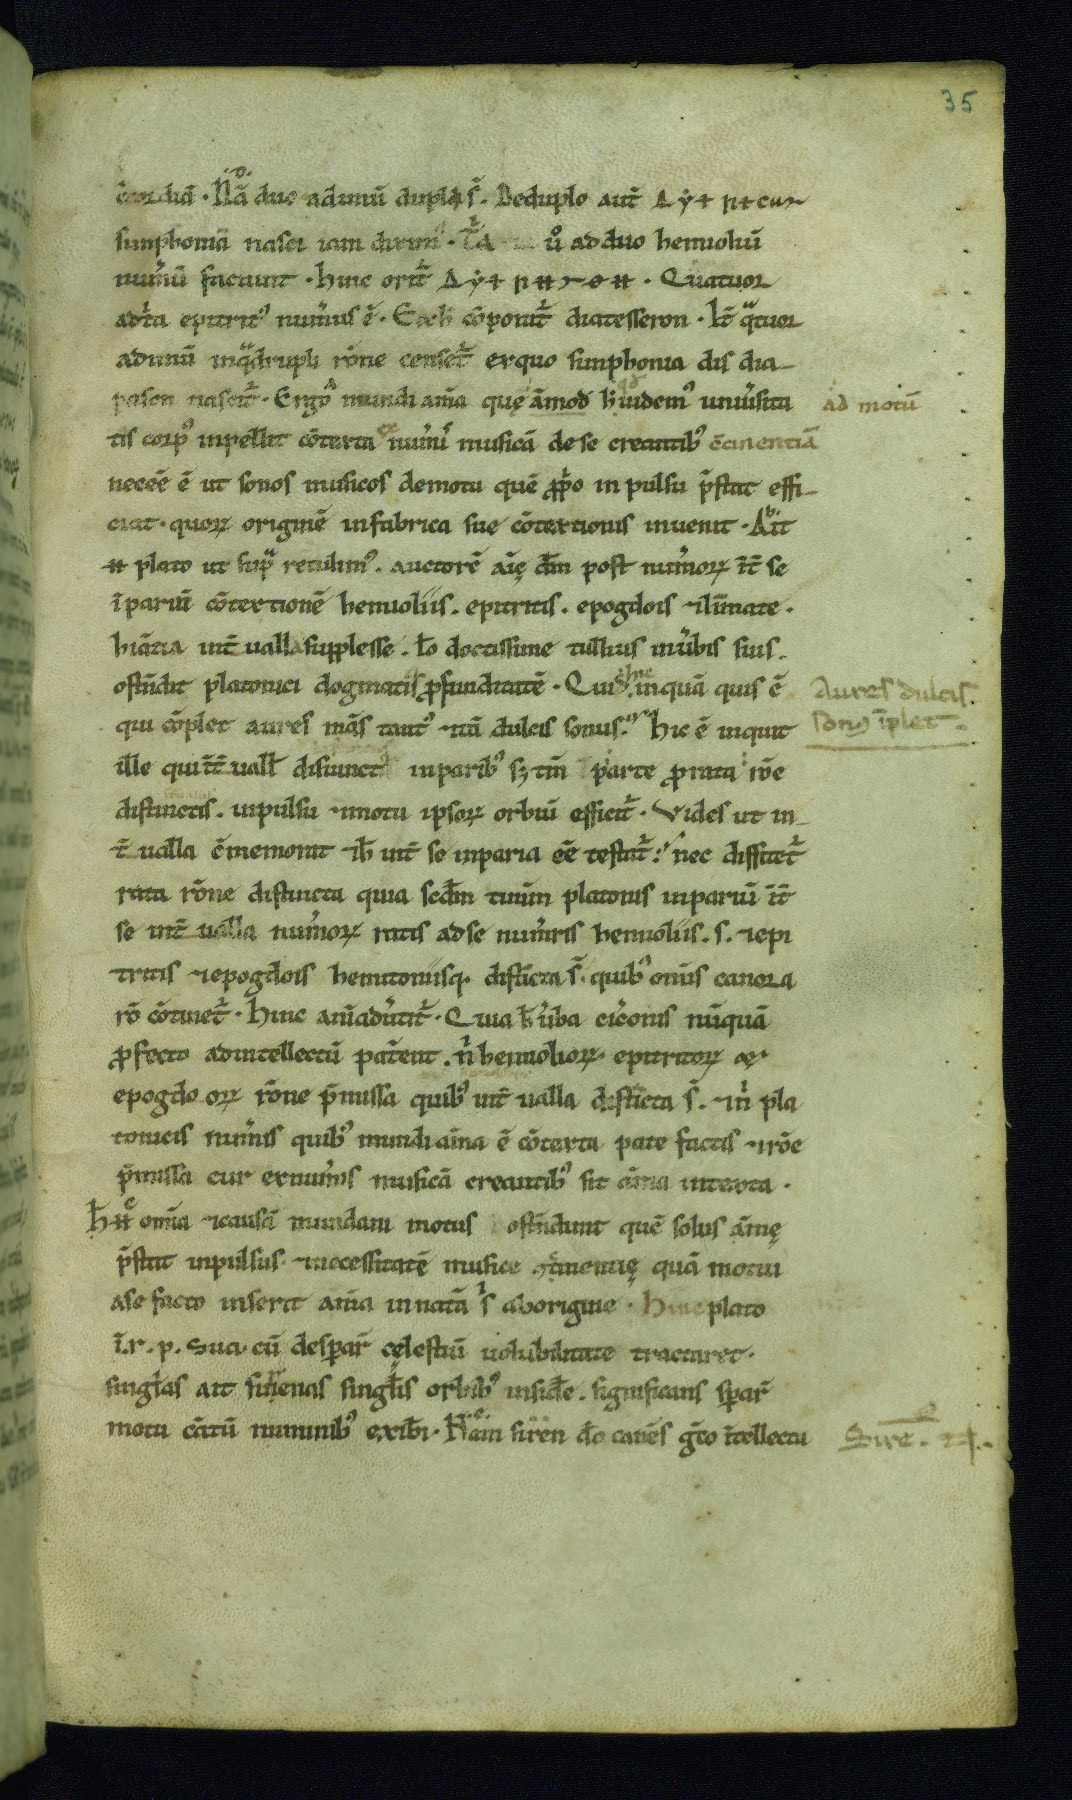 35
cordiā · Nā duo ad unū dupla s̄ · De duplo aut̄
simphoniā nasci iam dixim⁹ · T̄a ů ad duo hemioliū
num̄ū faciunt · hinc orit̄ · Quatuor
ad t̄a epitrit⁹ num̄us ē · Ex h̄ cōponit̄ diatesseron · It̄ qͣtuor
ad unū in qͣdrupli rōne censet̄ ex quo simphonia dis dia-
pason nascit̄ · Ergo mundi aīa quę āmod h̄ uidem⁹ uniūsita
ad motū
tis corp⁹ inpellit cōtexta ex num̄is musicā de se creantib⁹ c̄cinentiā
neceē ē ut sonos musicos de motu quē ꝓp̄o inpulsu p̄stat effi-
ciat · quoꝝ originē in fabrica sue cōtextionis inuenit · Ait
plato ut supͣ retulim⁹ · auctorē aīę dm̄ post num̄oꝝ īt̄ se
īpariū cōtextionē hemioliis · epitritis · epogdois ⁊ līmate ·
hiātia int̄ualla supplesse · Io doctissime tullius in ūbis suis ·
ostn̄dit platonici dogmatis ꝓfunditatē · Quis hic inquā quis ē
Aures dulcis
qui cōplet aures mās tant⁹ ⁊ tā dulcis sonus · hic ē inquit
son⁹ īplet ·
ille qui īt̄uall disiunct inparib⁹ sꝫ tm̄ p parte prorata rōe
distinctis · inpulsu ⁊ motu ipsoꝝ orbiū efficit̄ · Vides ut in-
t̄ualla c̄memorat ⁊ h̄ int̄ se inparia eē testat̄ nec diffitet̄
rata rōne distincta quia scdm̄ timm̄ platonis inpariū īt̄
se int̄ualla num̄oꝝ ratis ad se num̄is hemioliis · s · ⁊ epi
tritis ⁊ epogdois hemitoniisqꝫ distīcta s̄ · quib⁹ om̄is canora
rō cōtinet̄ · hinc anīadūtit̄ · Quia h̄ ūba cic̄onis nūquā
ꝓfecto ad intellectū patēnt · n̄ hemiolioꝝ · epitritoꝝ
epogdooꝝ rōne p̄missa quib⁹ int̄ualla distīcta s̄ · ⁊ n̄ pla
tonicis num̄is quib⁹ mundi aīna ē cōtexta patefactis ⁊ rōe
p̄missa cur ex num̄is musicā creantib⁹ sit āma intexta ·
H omīa ⁊ causā mundani motus ostn̄dunt quē solus āmę
p̄stat inpulsus · ⁊ necessitatē musice ꝯtinentię quā motui
a se facto inserit aīma innatā s ab origine · Hinc plato
ī · r · p · sua · cū de spar̄ cęlestiū uolubilitate tractaret ·
singlas ait sirenas singlis orbib⁹ inside · significans spar̄
motu cātū numinib⁹ exibi · Nam siren do canēs gto ītellectu
Sire ·